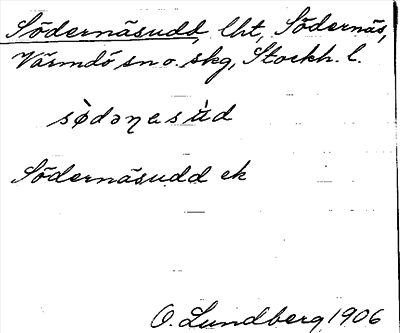 Södernäsudd, lht, Södernäs,
Värmdö sn o. skg, Stockh. l.
sö̀dəɳesùd
Södernäsudd ek
O. Lundberg 1906